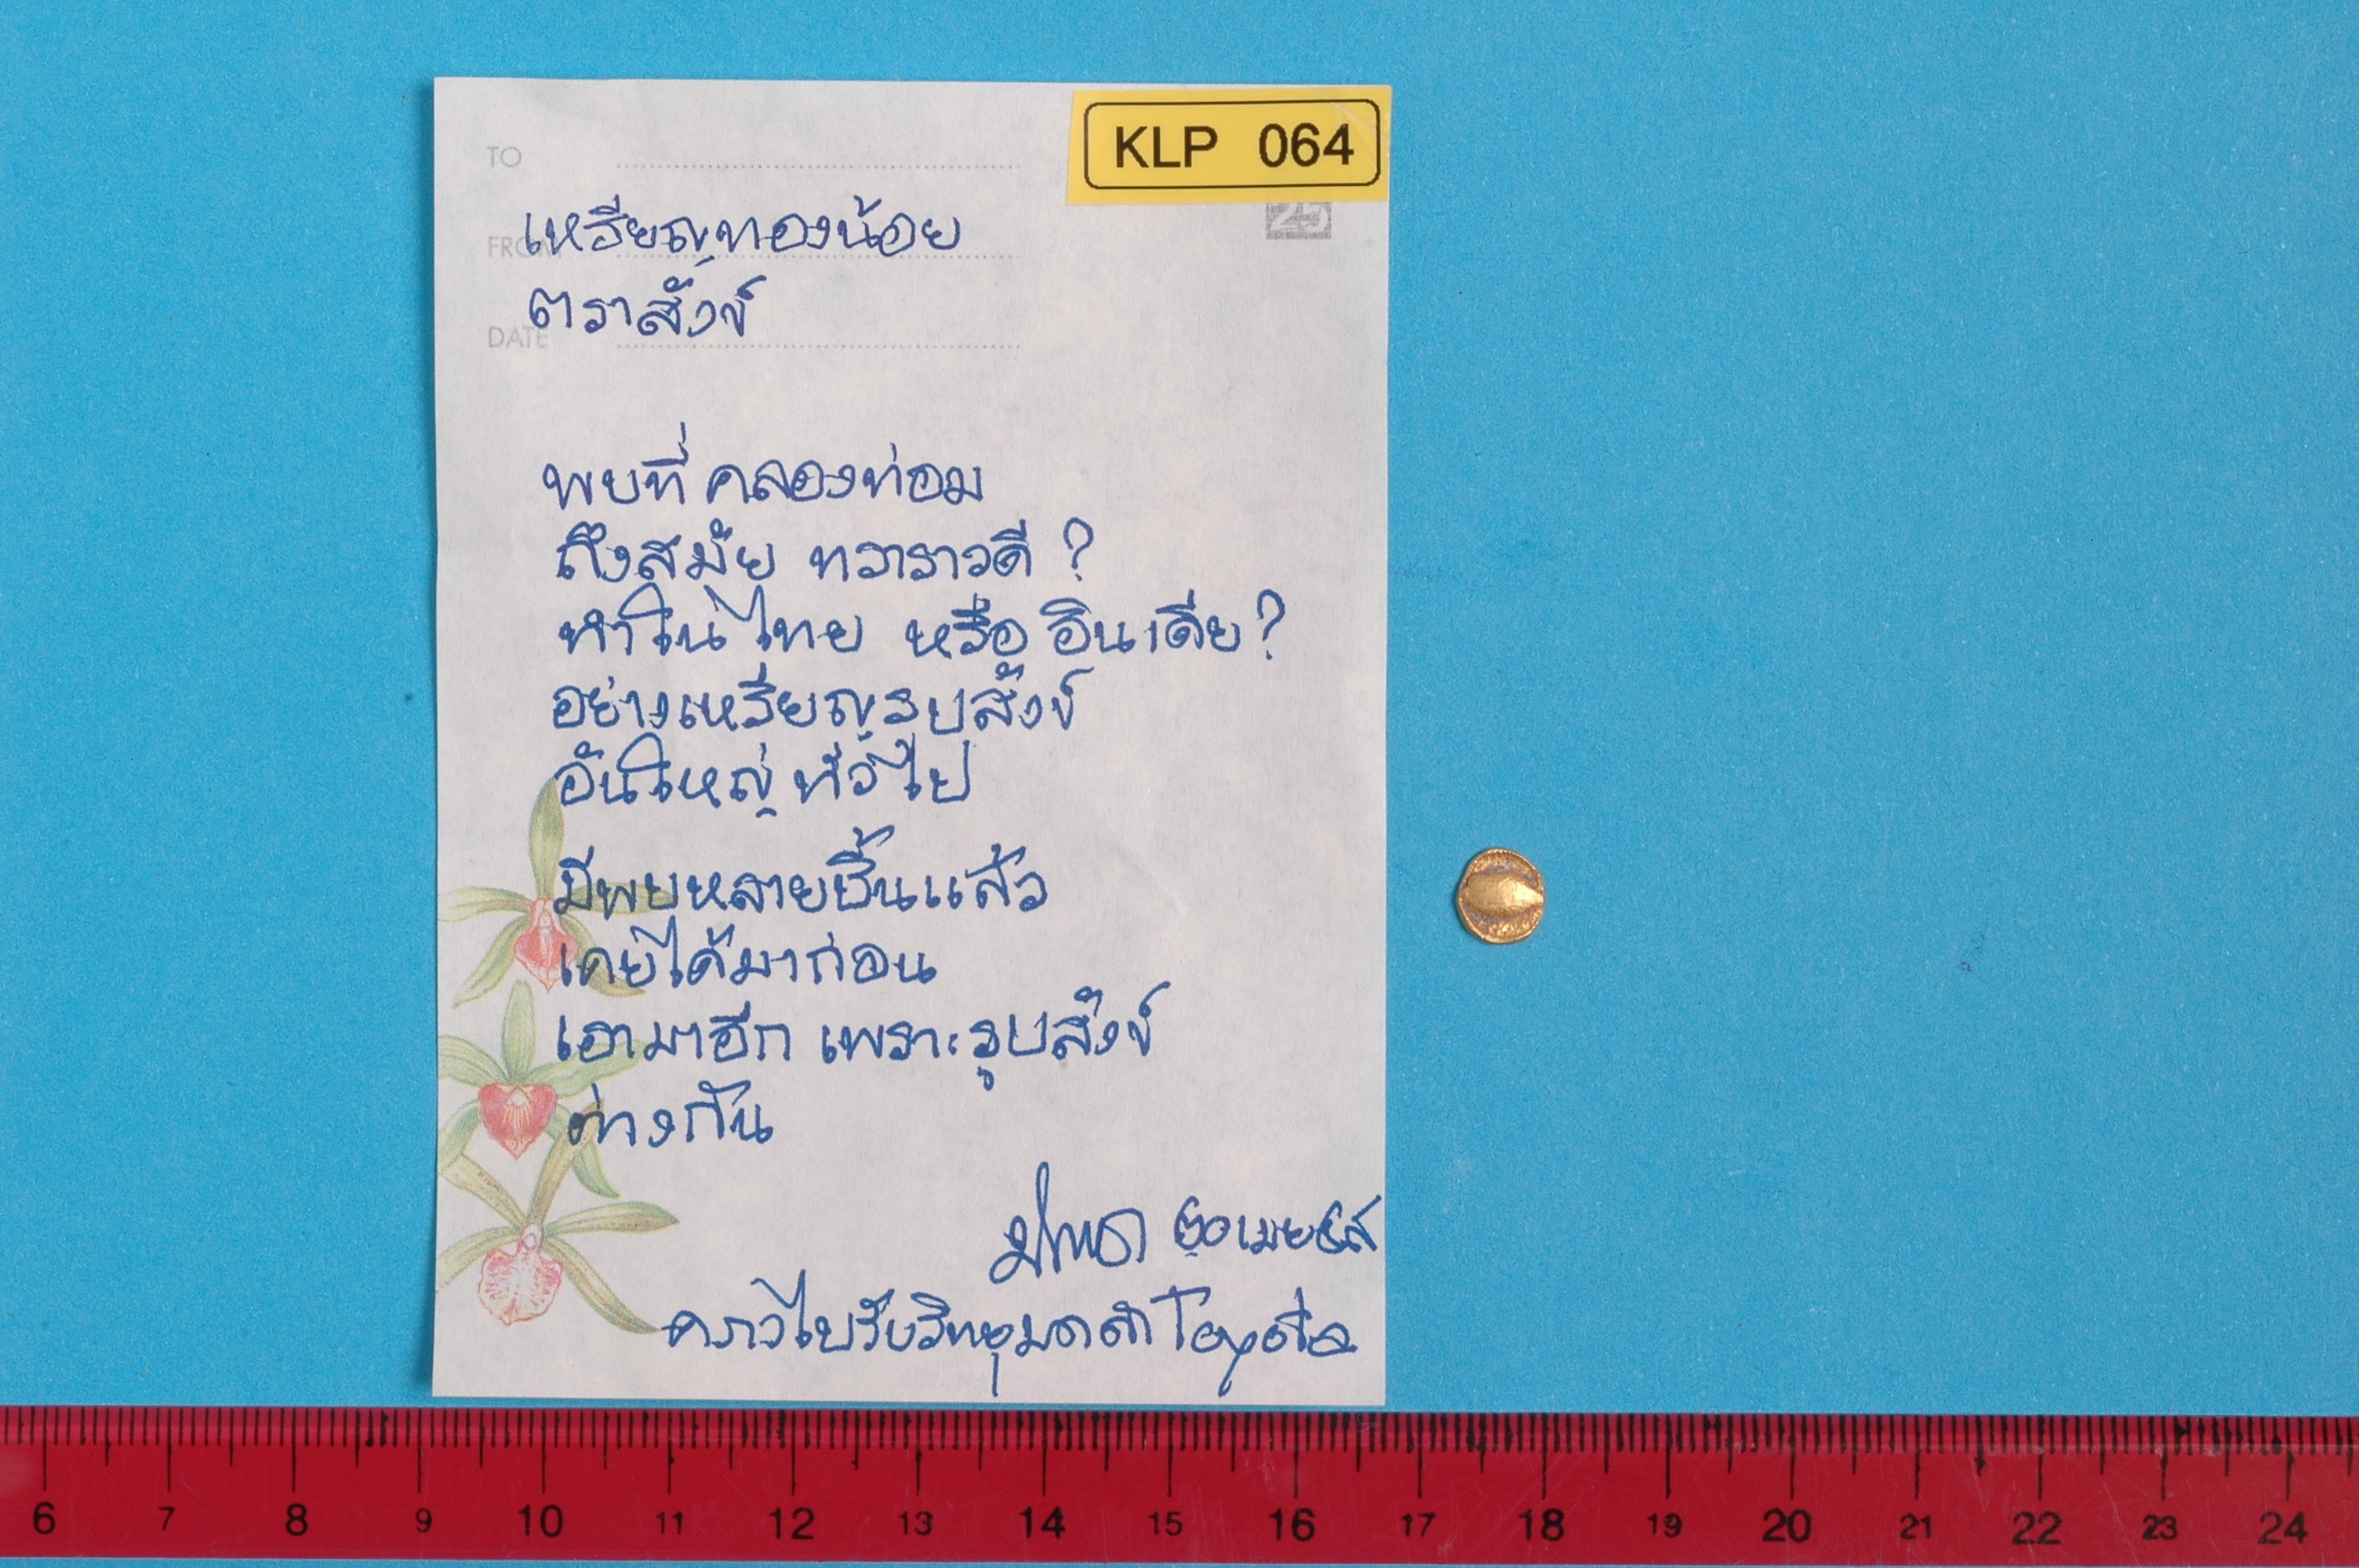 KLP 064
TO
25
FROM
เหรียญทองน้อย
DATE
ตราสังข์
พบที่ คลองท่อม
ถึงสมัย ทวาราวดี ?
ทำในไทย หรือ อินเดีย ?
อย่างเหรียญรูปสังข์
อันใหญ่ ทั่วไป
มีพบหลายชิ้นแล้ว
เคยได้มาก่อน
เอามาอีก เพราะรูปสังข์
ต่างกัน
คราวไปรับวิทยุมดดำ Toyota
6 7 8 9 10 11 12 13 14 15 16 17 18 19 20 21 22 23 24